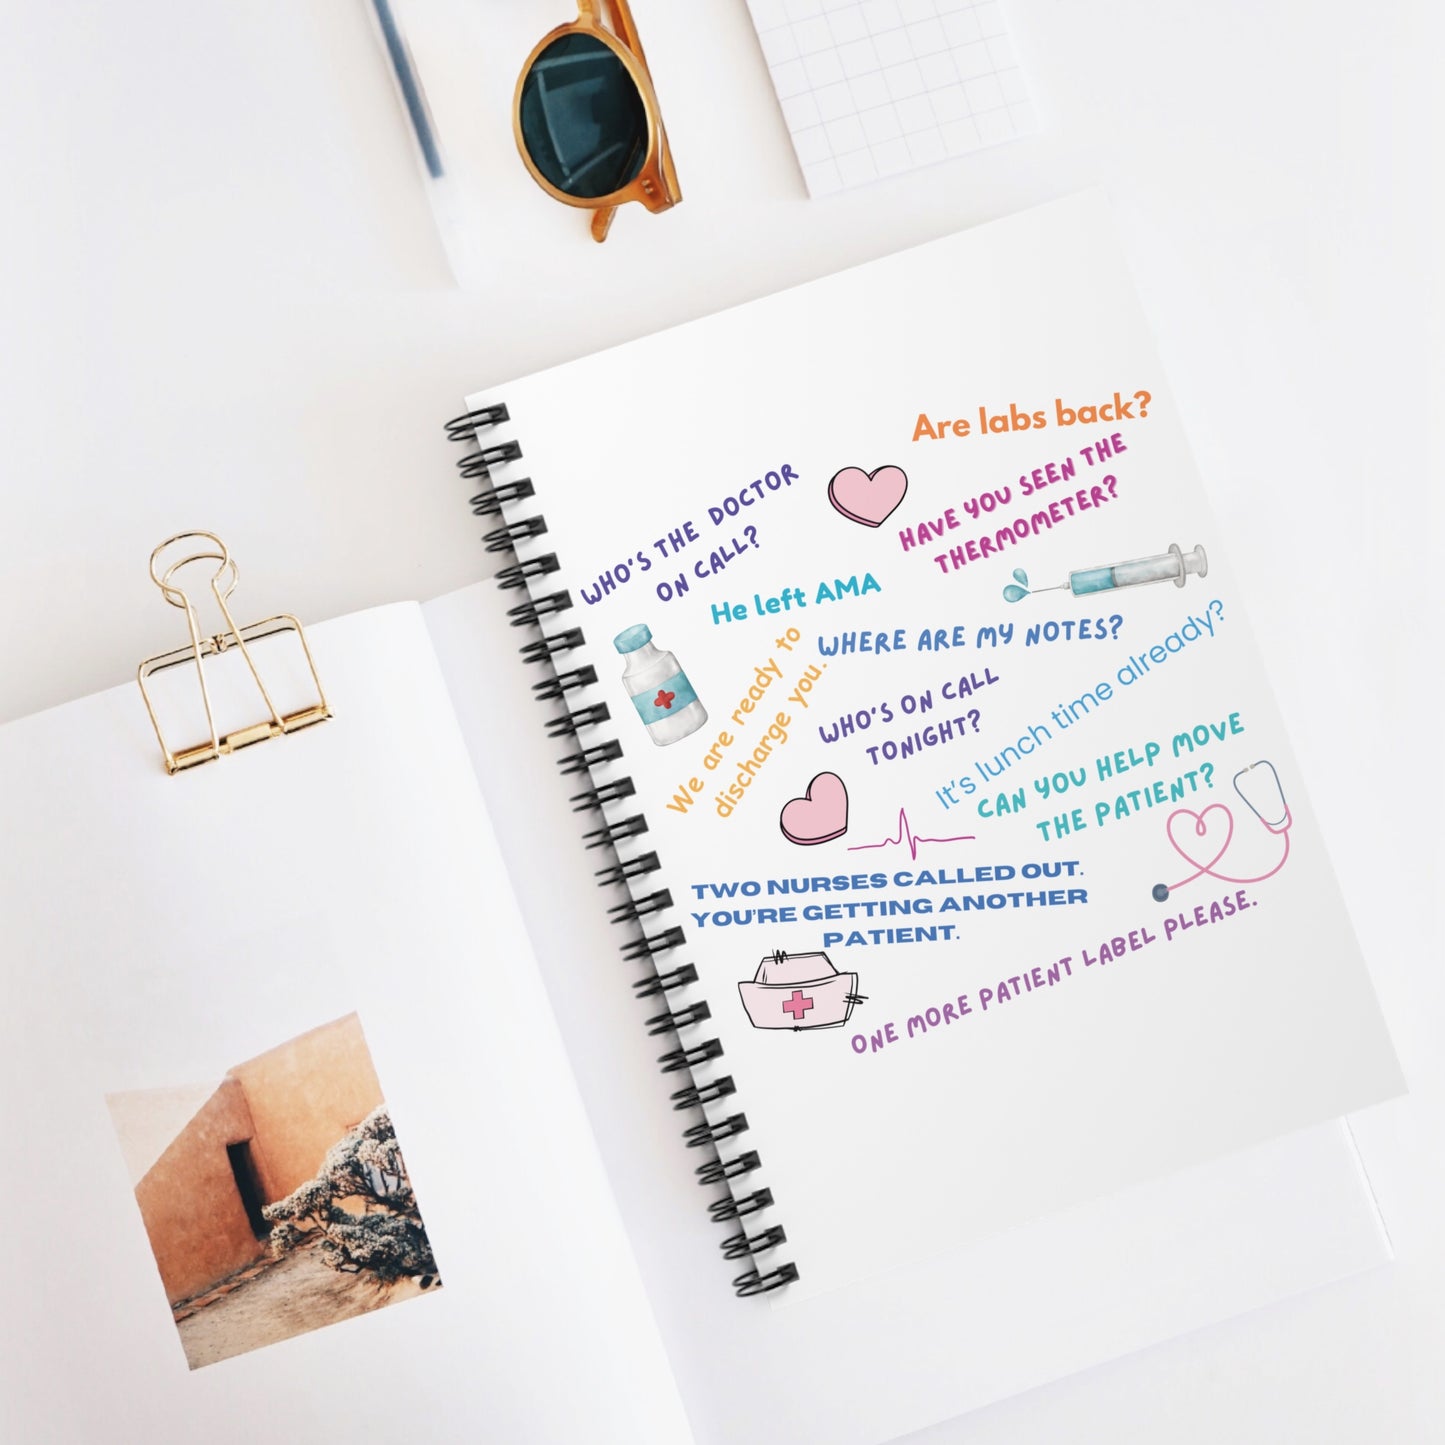 Are labs back?
WHO'S THE DOCTOR
ON CALL?
HAVE YOU SEEN THE
THERMOMETER?
He left AMA
WHERE ARE MY NOTES?
We are ready to
discharge you.
WHO'S ON CALL
TONIGHT?
It's lunch time already?
CAN YOU HELP MOVE
THE PATIENT?
TWO NURSES CALLED OUT.
YOU'RE GETTING ANOTHER
PATIENT.
ONE MORE PATIENT LABEL PLEASE.